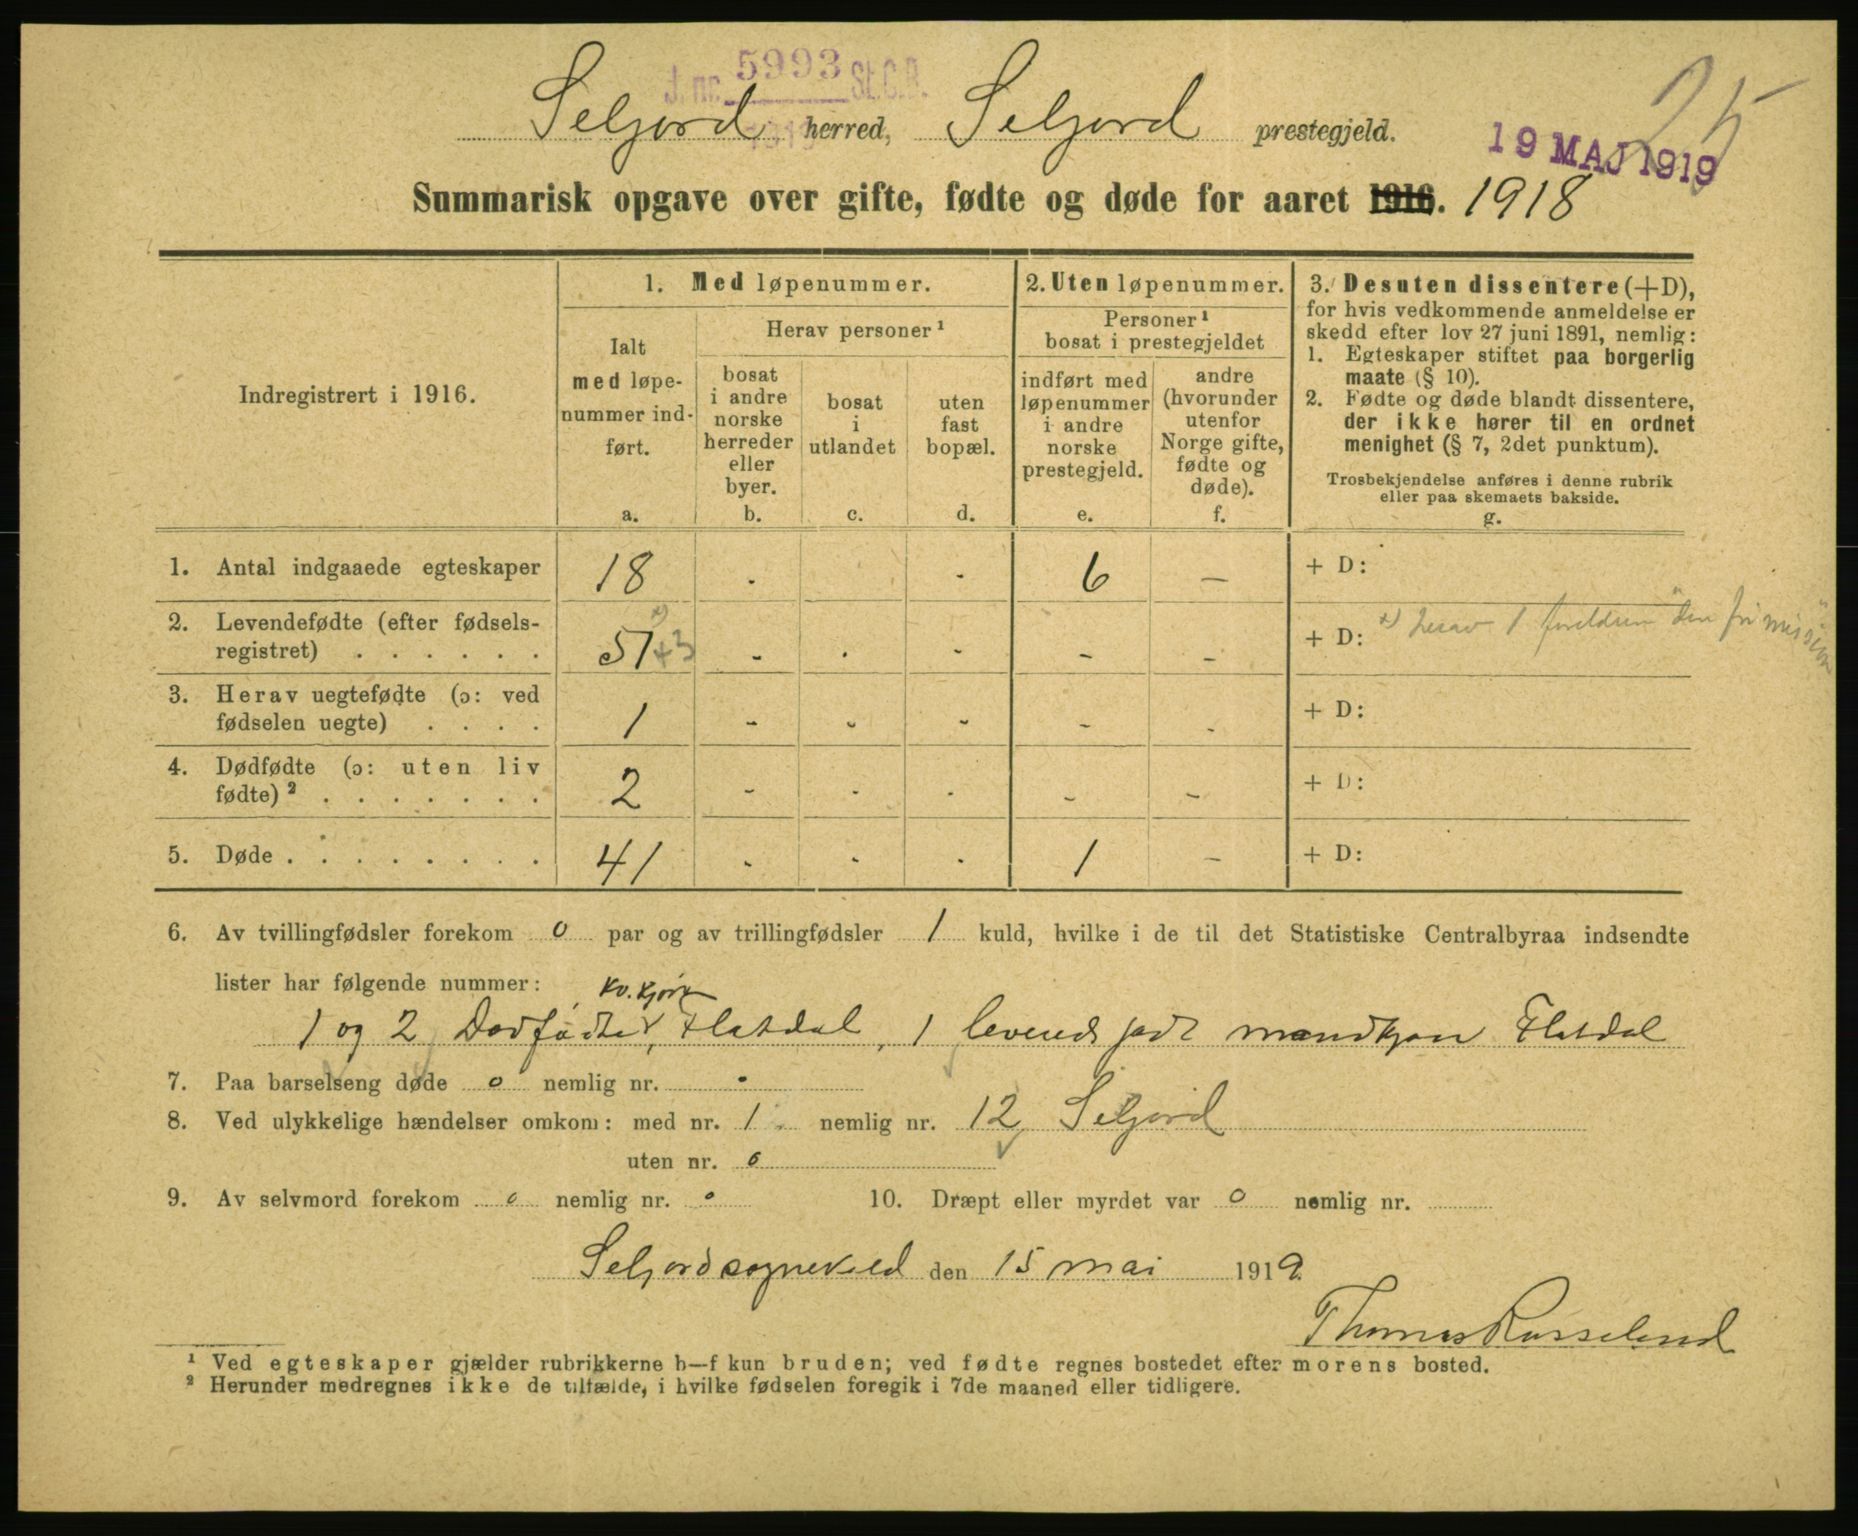 J. nr. 5993 St.C.B.
1919
25
Seljord herred, Seljord prestegjeld.
19 MAJ 1919
Summarisk opgave over gifte, fødte og døde for aaret 1916. 1918
Indregistrert i 1916.
1. Med løpenummer.
Ialt
med løpe-
nummer ind-
ført.
a.
Herav personer ¹
bosat
i andre
norske
herreder
eller
byer.
b.
bosat
i
utlandet
c.
uten
fast
bopæl.
d.
2. Uten løpenummer.
Personer ¹
bosat i prestegjeldet
indført med
løpenummer
i andre
norske
prestegjeld.
e.
andre
(hvorunder
utenfor
Norge gifte,
fødte og
døde).
f.
3. Desuten dissentere (+D),
for hvis vedkommende anmeldelse er
skedd efter lov 27 juni 1891, nemlig:
1. Egteskaper stiftet paa borgerlig
maate (§ 10).
2. Fødte og døde blandt dissentere,
der ikke hører til en ordnet
menighet (§ 7, 2det punktum).
Trosbekjendelse anføres i denne rubrik
eller paa skemaets bakside.
g.
1. Antal indgaaede egteskaper 18 - - 6 — + D:
2. Levendefødte (efter fødsels-
registret) . . . . . . 57 x) +3 - - - - - + D: x) herav 1 foreldren "den fri mission"
3. Herav uegtefødte (ɔ: ved
fødselen uegte) . . . . 1 - - - - - + D:
4. Dødfødte (ɔ: uten liv
fødte) ² . . . . . . . 2 - - - - - + D:
5. Døde . . . . . . . . 41 - - - 1 — + D:
6. Av tvillingfødsler forekom 0 par og av trillingfødsler 1 kuld, hvilke i de til det Statistiske Centralbyraa indsendte
lister har følgende nummer:
kv. kjøn
1 og 2 Dødfødte, Flatdal, 1 levende født mandkjøn Flatdal
7. Paa barselseng døde 0 nemlig nr.
8. Ved ulykkelige hændelser omkom: med nr. 1 nemlig nr. 12 Seljord
uten nr. 0
9. Av selvmord forekom 0 nemlig nr. 0 10. Dræpt eller myrdet var 0 nemlig nr.
Seljord sognekald den 15 mai 1919.
Thomas Russelund
¹ Ved egteskaper gjælder rubrikkerne b—f kun bruden; ved fødte regnes bostedet efter morens bosted.
² Herunder medregnes ikke de tilfælde, i hvilke fødselen foregik i 7de maaned eller tidligere.